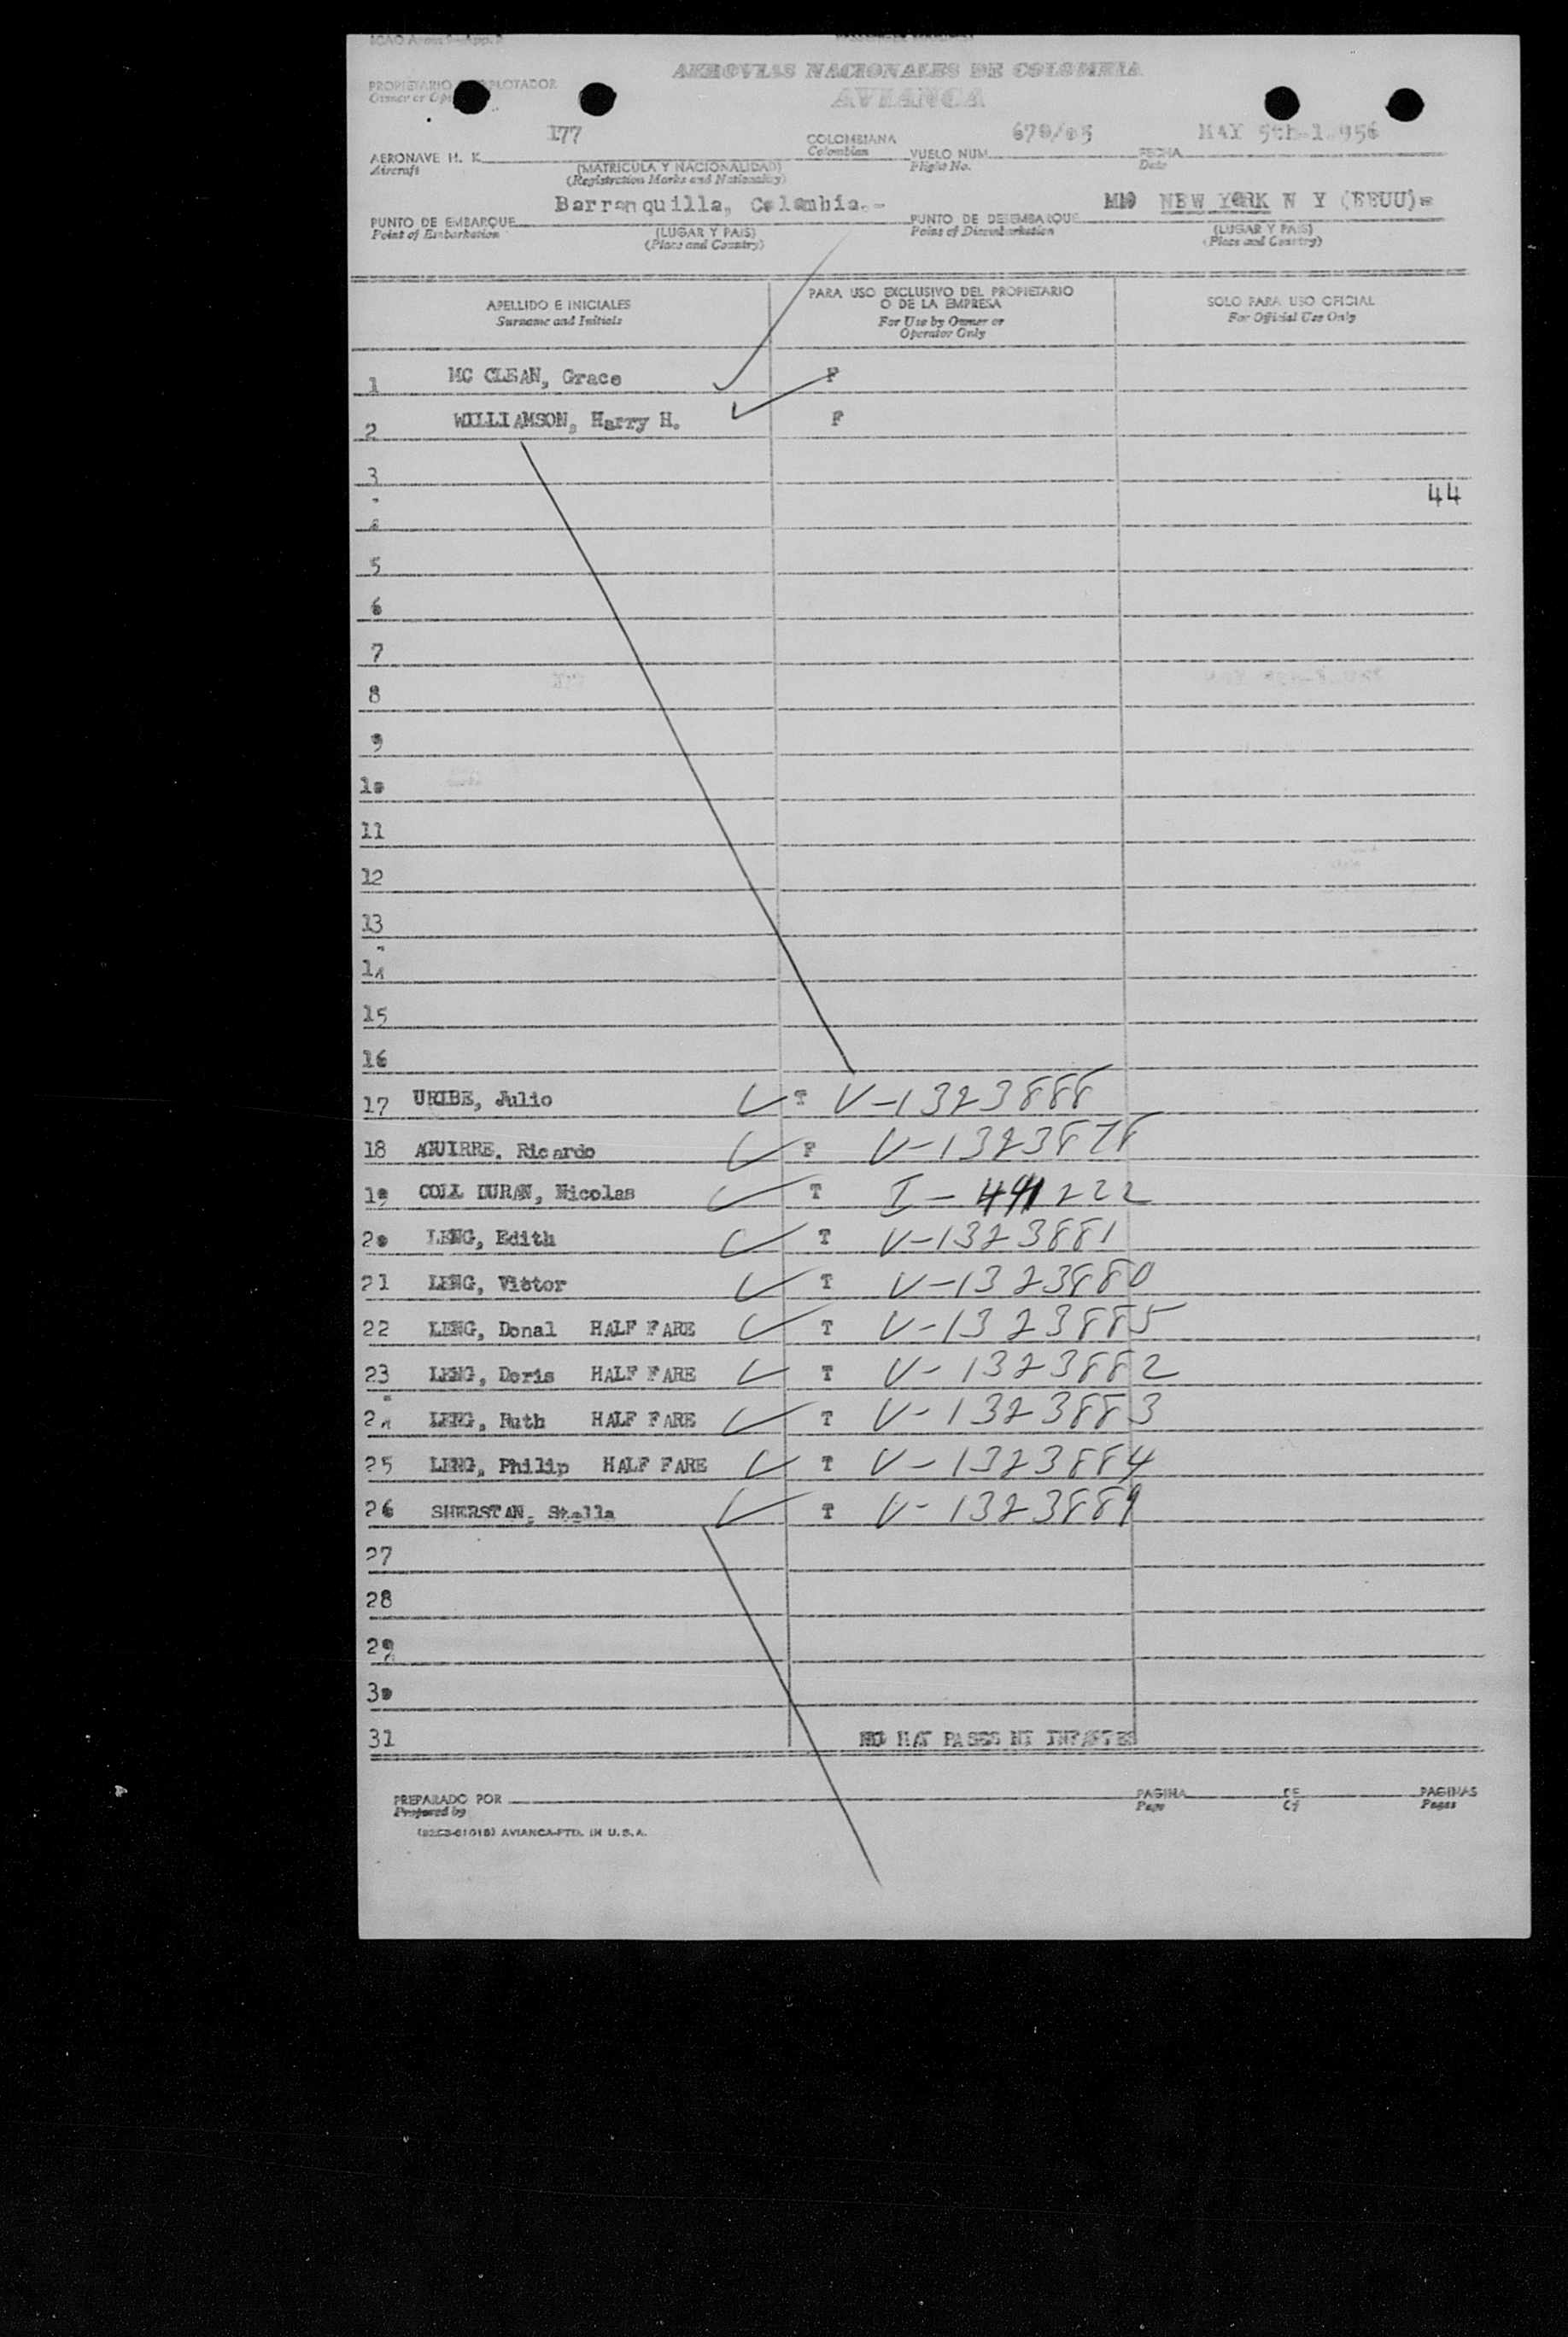 AEROVIAS NACIONALES DE COLOMBIA
AVIANCA
PROPIETARIO EXPLOTADOR
Owner or
177 COLOMBIANA 670/05 MAY 5th-1.956
AERONAVE H. K. Colombian VUELO NUM. FECHA
Aircraft (MATRICULA Y NACIONALIDAD) Flight No. Date
(Registration Marks and Nationality)
Barranquilla, Colombia.- NEW YORK N Y (EEUU)=
PUNTO DE EMBARQUE PUNTO DE DESEMBARQUE
Point of Embarkation (LUGAR Y PAIS) Point of Disembarkation (LUGAR Y PAIS)
(Place and Country) (Place and Country)
APELLIDO E INICIALES PARA USO EXCLUSIVO DEL PROPIETARIO SOLO PARA USO OFICIAL
O DE LA EMPRESA
Surname and Initials For Use by Owner or For Official Use Only
Operator Only
1 MC CLEAN, Grace F
2 WILLIAMSON, Harry H. F
3
44
5
6
7
8
9
10
11
12
13
14
15
16
17 URIBE, Julio T V-1323888
18 AGUIRRE, Ricardo F V-1323878
19 COLL DURAN, Nicolas T I-441222
20 LENG, Edith T V-1323881
21 LENG, Victor T V-1323880
22 LENG, Donal HALF FARE T V-1323885
23 LENG, Doris HALF FARE T V-1323882
24 LENG, Ruth HALF FARE T V-1323883
25 LENG, Philip HALF FARE T V-1323884
26 SHERSTAN, Stella T V-1323889
27
28
29
30
31 NO HAY PASES NI INFANTES
PREPARADO POR PAGINA DE PAGINAS
Prepared by Page Of Pages
AVIANCA-PTD. IN U.S.A.